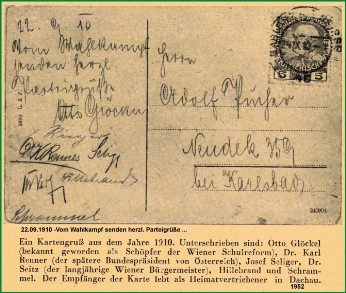 22. 9. 10
Vom Wahlkampf
senden herzl.
Parteigrüße
Otto Glöckel
Renner Selig
Dr Seitz Hillebrand
Schrammel
Herrn
Adolf
Neudek 359
bei Karlsbad
22.09.1910 -Vom Wahlkampf senden herzl. Parteigrüße ...
Ein Kartengruß aus dem Jahre 1910. Unterschrieben sind: Otto Glöckel
(bekannt geworden als Schöpfer der Wiener Schulreform), Dr. Karl
Renner (der spätere Bundespräsident von Österreich), Josef Seliger, Dr.
Seitz (der langjährige Wiener Bürgermeister), Hillebrand und Schram-
mel. Der Empfänger der Karte lebt als Heimatvertriebener in Dachau.
1952